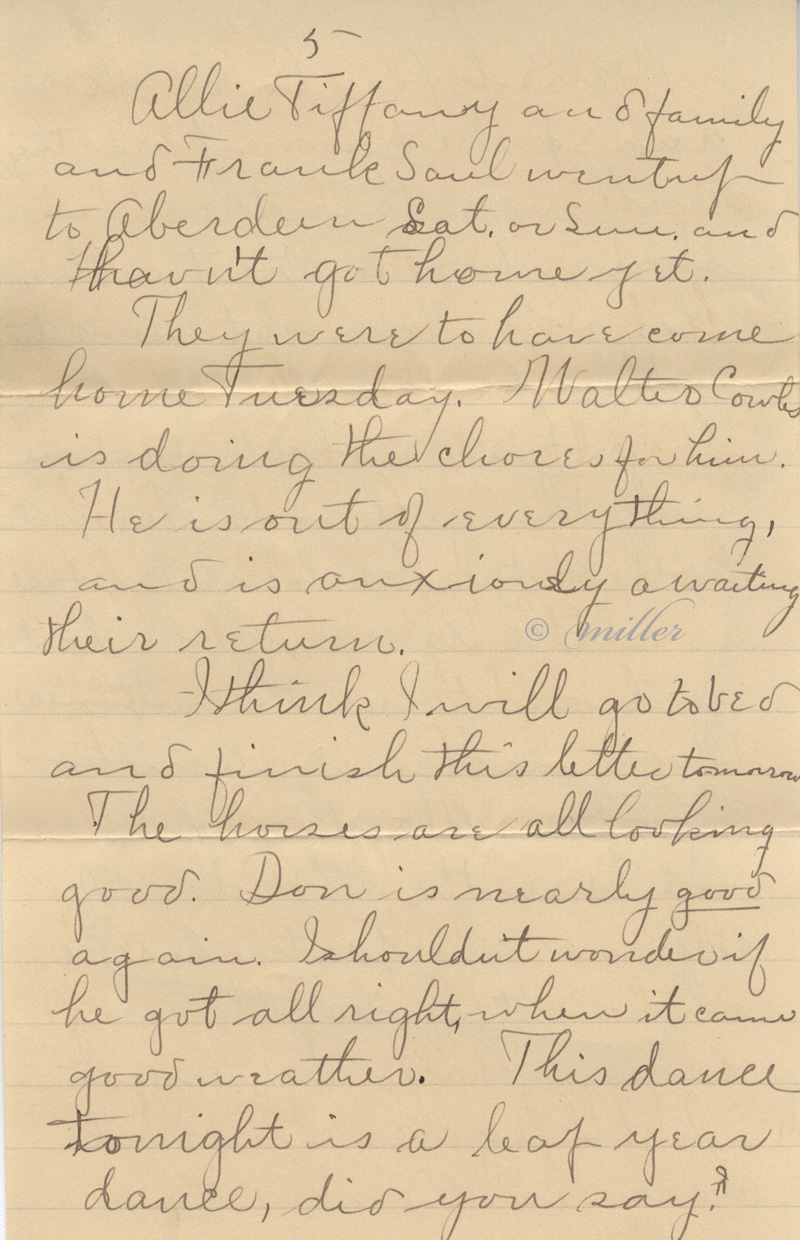 5
Allie Tiffany and family
and Frank Saul went up
to Aberdeen Sat. or Sun. and
havn't got home yet.
They were to have come
home Tuesday. Walter Cowles
is doing the chores for him.
He is out of everything,
and is anxiously awaiting
their return.
© miller
I think I will go to bed
and finish this letter tomorrow
The horses are all looking
good. Don is nearly good
again. I shouldn't wonder if
he got all right, when it came
good weather. This dance
tonight is a leap year
dance, did you say?